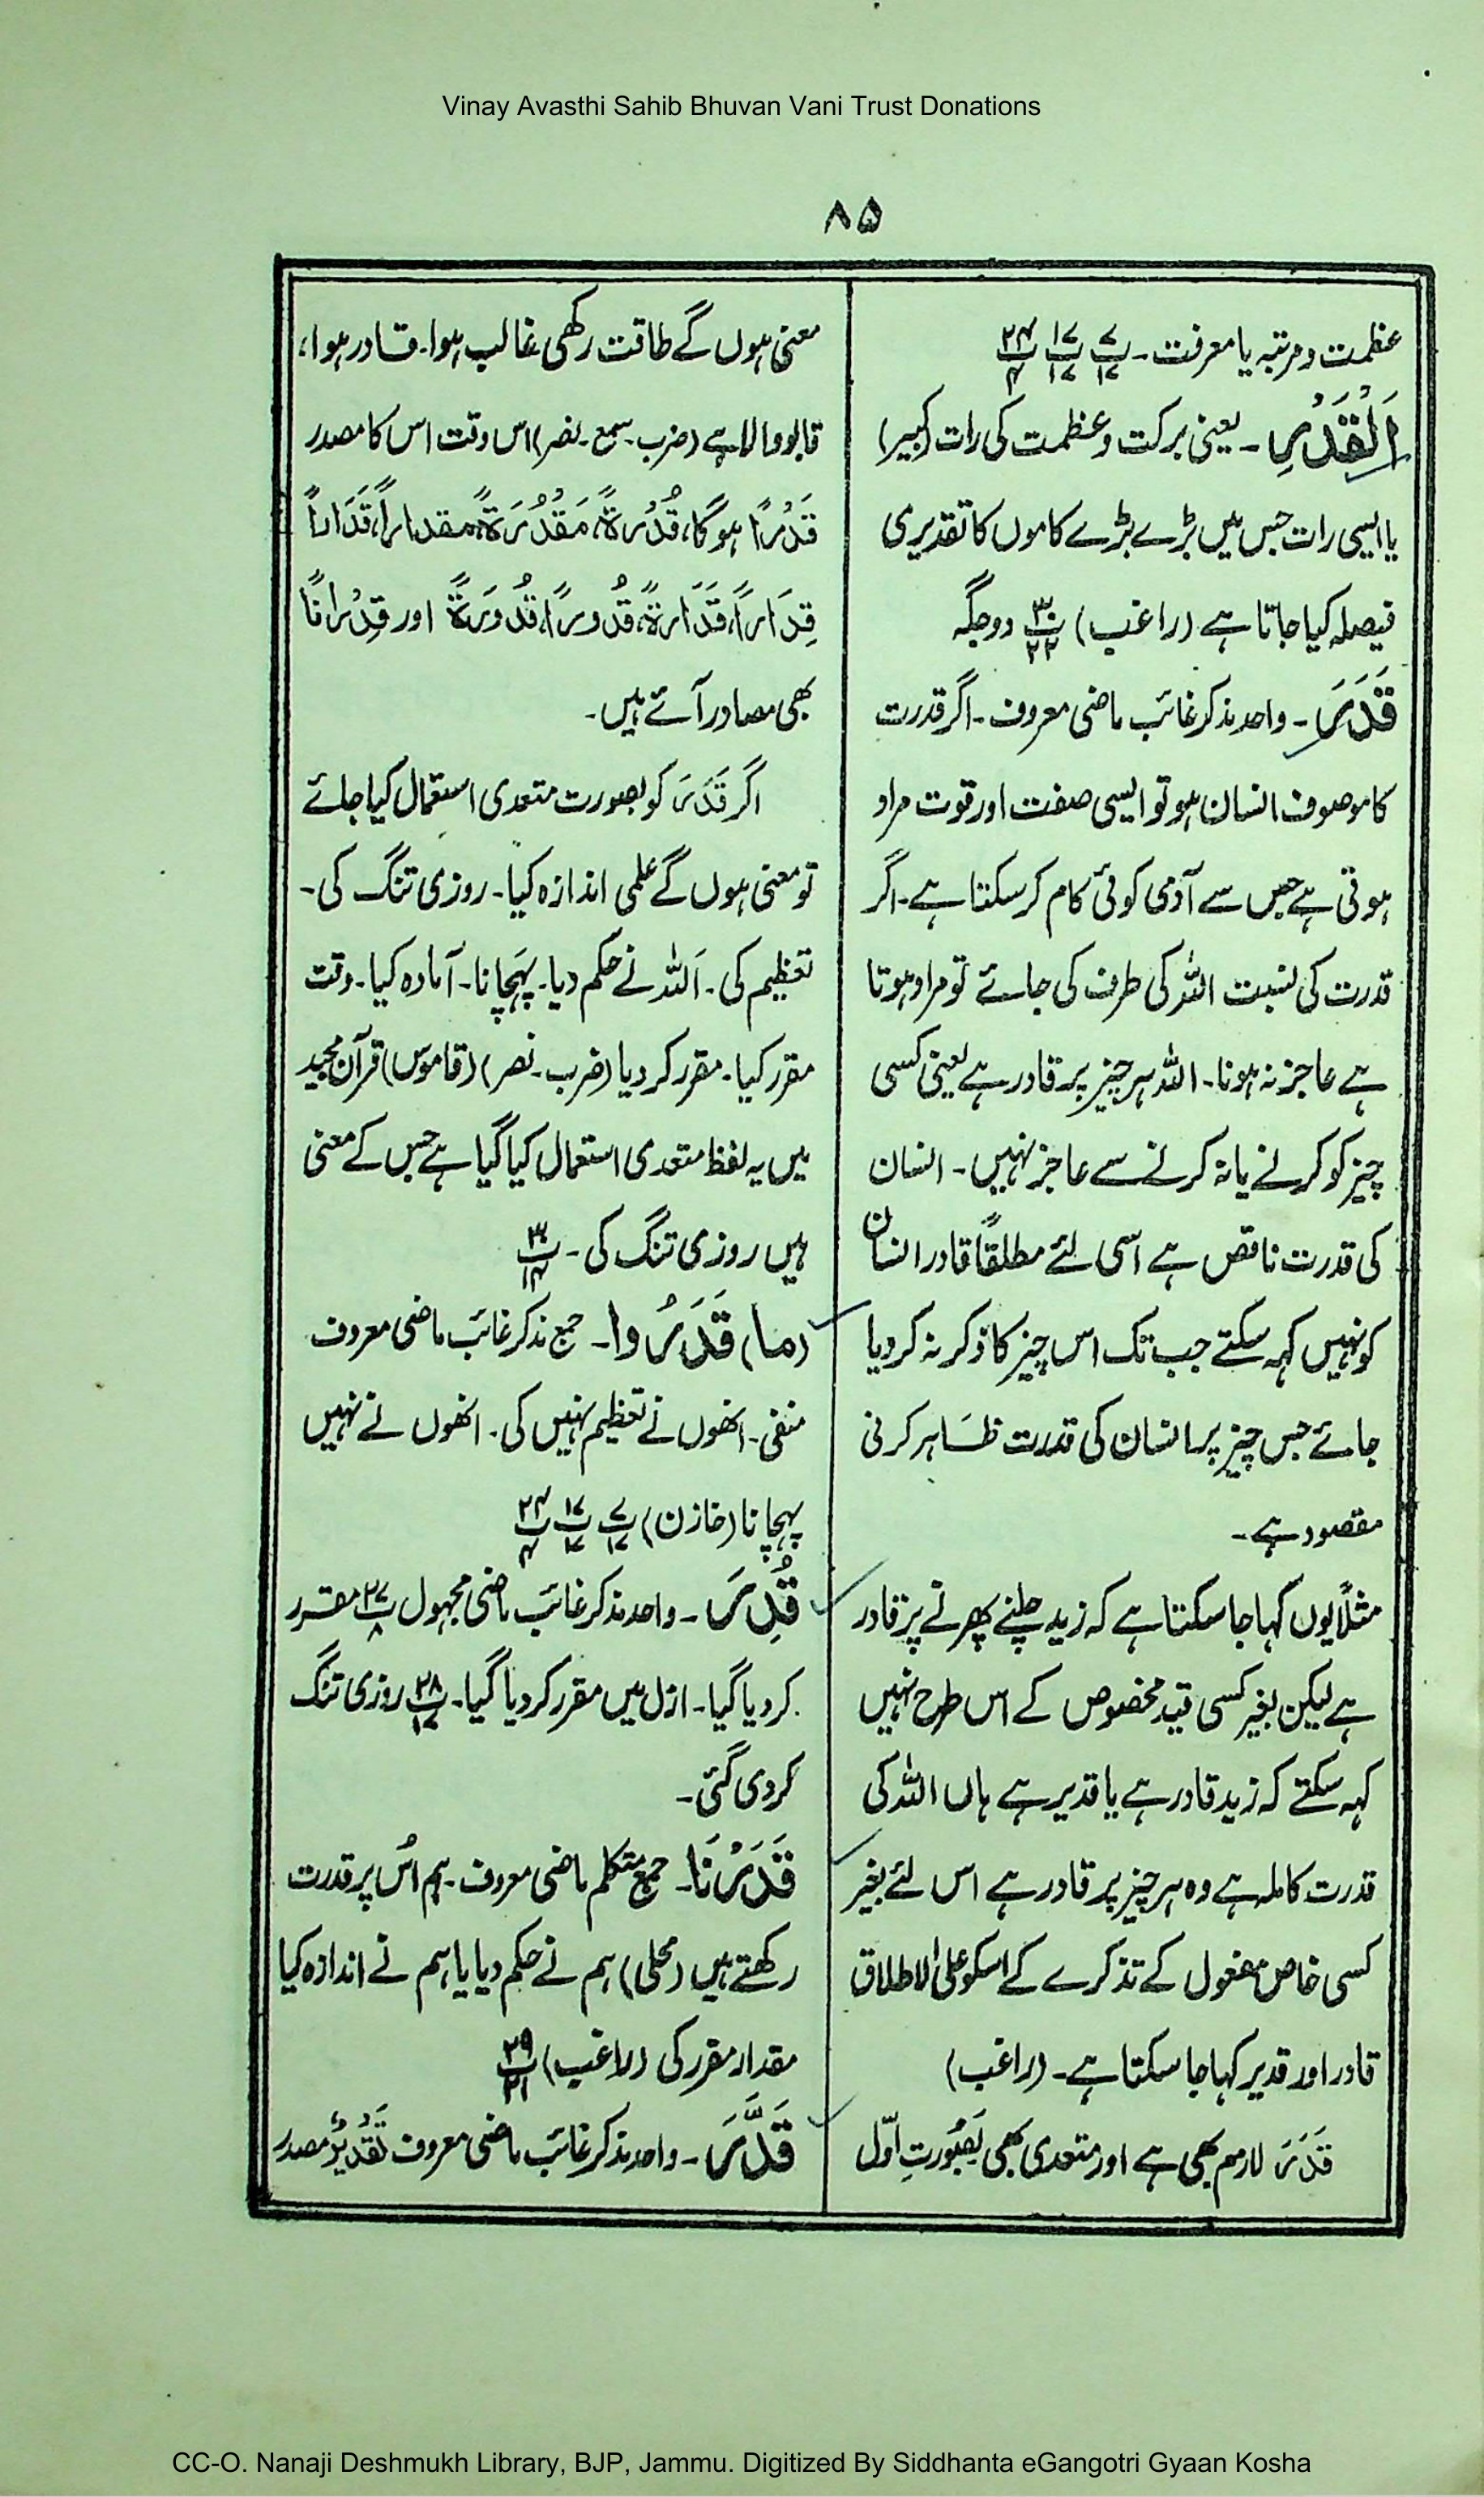 Vinay Avasthi Sahib Bhuvan Vani Trust Donations
۸۵
عظمت و مرتبہ یا معرفت۔ پ۷/۱۷ پ۱۷/۱۷ پ۲۴/۴
اَلْقَدْرِ۔ یعنی برکت و عظمت کی رات (کبیر)
یا ایسی رات جس میں بڑے بڑے کاموں کا تقدیری
فیصلہ کیا جاتا ہے (راغب) پ۳۰/۲۲ دو جگہ
قَدَرَ۔ واحد مذکر غائب ماضی معروف۔ اگر قدرت
کا موصوف انسان ہو تو ایسی صفت اور قوت مراد
ہوتی ہے جس سے آدمی کوئی کام کر سکتا ہے۔ اگر
قدرت کی نسبت اللہ کی طرف کی جائے تو مراد ہوتا
ہے عاجز نہ ہونا۔ اللہ ہر چیز پر قادر ہے یعنی کسی
چیز کو کرنے یا نہ کرنے سے عاجز نہیں۔ انسان
کی قدرت ناقص ہے اسی لئے مطلقاً قادر انسان
کو نہیں کہہ سکتے جب تک اس چیز کا ذکر نہ کر دیا
جائے جس چیز پر انسان کی قدرت ظاہر کرنی
مقصود ہے۔
مثلاً یوں کہا جا سکتا ہے کہ زید چلنے پھرنے پر قادر
ہے لیکن بغیر کسی قید مخصوص کے اس طرح نہیں
کہہ سکتے کہ زید قادر ہے یا قدیر ہے ہاں اللہ کی
قدرت کاملہ ہے وہ ہر چیز پر قادر ہے اس لئے بغیر
کسی خاص مفعول کے تذکرے کے اسکو علیٰ الاطلاق
قادر اور قدیر کہا جا سکتا ہے۔ (راغب)
قَدَرَ لازم بھی ہے اور متعدی بھی بَصُورتِ اوّل
معنی ہوں گے طاقت رکھی غالب ہوا۔ قادر ہوا،
قابو والا ہے (ضرب۔ سمع۔ نصر) اس وقت اس کا مصدر
قَدْرًا ہوگا، قُدْرةً، مَقْدُرَةً، مقدارًا، قَدَارًا
قِدَارًا، قَدَارةً، قُدُورًا، قُدُورَةً اور قِدْرانًا
بھی مصادر آئے ہیں۔
اگر قَدَرَ کو بصورت متعدی استعمال کیا جائے
تو معنی ہوں گے علمی اندازہ کیا۔ روزی تنگ کی۔
تعظیم کی۔ اَللہ نے حکم دیا۔ پہچانا۔ آمادہ کیا۔ وقت
مقرر کیا۔ مقرر کر دیا (ضرب۔ نصر) (قاموس) قرآن مجید
میں یہ لفظ متعدی استعمال کیا گیا ہے جس کے معنی
ہیں روزی تنگ کی۔ پ۳۰/۱۴
(ما) قَدَرُوا۔ جمع مذکر غائب ماضی معروف
منفی۔ انھوں نے تعظیم نہیں کی۔ انھوں نے نہیں
پہچانا (خازن) پ۷/۱۷ پ۱۷/۱۷ پ۲۴/۴
قُدِرَ۔ واحد مذکر غائب ماضی مجہول پ۲۷/۸ مقرر
کر دیا گیا۔ ازل میں مقرر کر دیا گیا۔ پ۲۸/۱۷ روزی تنگ
کر دی گئی۔
قَدَرْنَا۔ جمع متکلم ماضی معروف۔ ہم اُس پر قدرت
رکھتے ہیں (محلی) ہم نے حکم دیا یا ہم نے اندازہ کیا
مقدار مقرر کی (راغب) پ۲۹/۲۱
قَدَّرَ۔ واحد مذکر غائب ماضی معروف تَقْدِیْرٌ مصدر
CC-O. Nanaji Deshmukh Library, BJP, Jammu. Digitized By Siddhanta eGangotri Gyaan Kosha